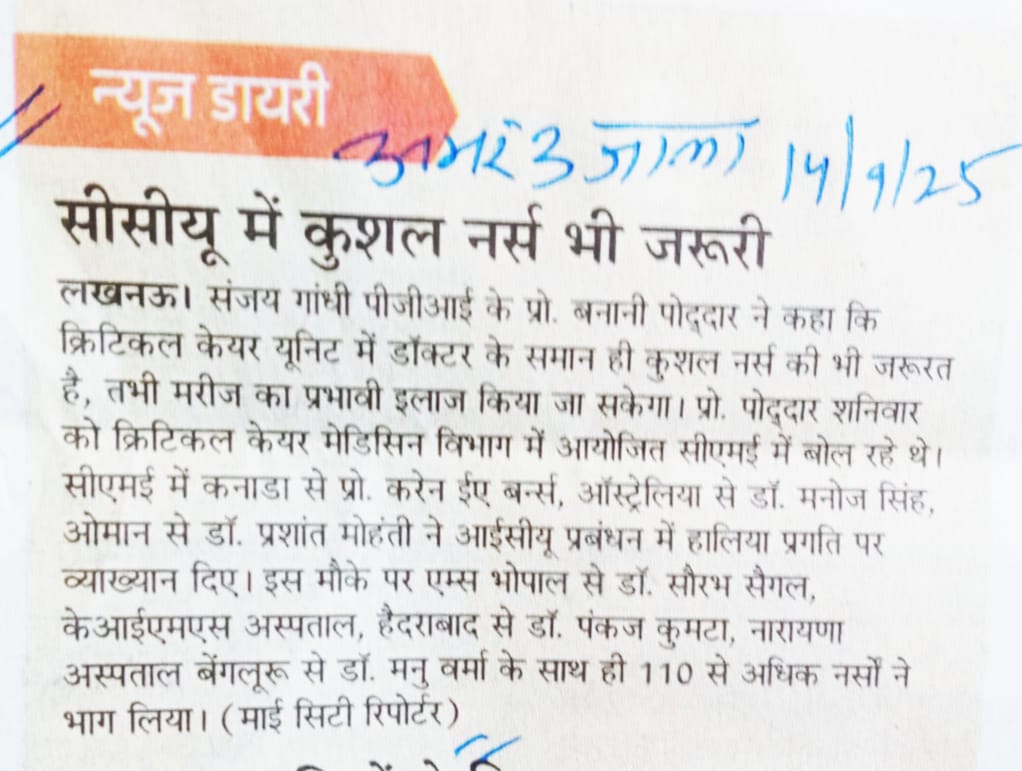 न्यूज डायरी
अमर उजाला 14/9/25
सीसीयू में कुशल नर्स भी जरूरी
लखनऊ। संजय गांधी पीजीआई के प्रो. बनानी पोद्दार ने कहा कि
क्रिटिकल केयर यूनिट में डॉक्टर के समान ही कुशल नर्स की भी जरूरत
है, तभी मरीज का प्रभावी इलाज किया जा सकेगा। प्रो. पोद्दार शनिवार
को क्रिटिकल केयर मेडिसिन विभाग में आयोजित सीएमई में बोल रहे थे।
सीएमई में कनाडा से प्रो. करेन ईए बर्न्स, ऑस्ट्रेलिया से डॉ. मनोज सिंह,
ओमान से डॉ. प्रशांत मोहंती ने आईसीयू प्रबंधन में हालिया प्रगति पर
व्याख्यान दिए। इस मौके पर एम्स भोपाल से डॉ. सौरभ सैगल,
केआईएमएस अस्पताल, हैदराबाद से डॉ. पंकज कुमटा, नारायणा
अस्पताल बेंगलूरू से डॉ. मनु वर्मा के साथ ही 110 से अधिक नर्सों ने
भाग लिया। (माई सिटी रिपोर्टर)